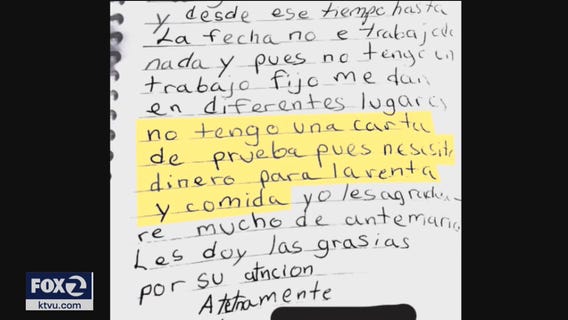 y desde ese tiempo hasta
La fecha no e trabajado
nada y pues no tengo un
trabajo fijo me dan
en diferentes lugares
no tengo una carta
de prueba pues nesesito
dinero para la renta
y comida yo les agradece-
re mucho de antemano
Les doy las grasias
por su atncion
Atetnamente
FOX 2
ktvu.com